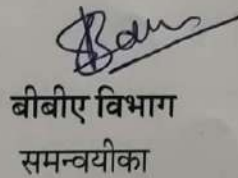 बीबीए विभाग
समन्वयीका